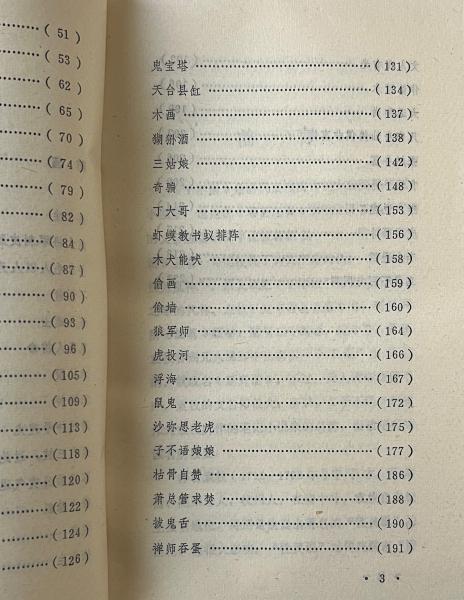 ……( 51 )
……( 53 )
……( 62 )
……( 65 )
……( 70 )
……( 74 )
……( 79 )
……( 82 )
……( 84 )
……( 87 )
……( 90 )
……( 93 )
……( 96 )
……(105 )
……(109 )
……(113 )
……(118 )
……(120 )
……(122 )
……(124 )
……(126 )
鬼宝塔……( 131 )
天台县缸……( 134 )
木画……( 137 )
猢狲酒……( 138 )
三姑娘……( 142 )
奇骗……( 148 )
丁大哥……( 153 )
虾蟆教书蚁排阵……( 156 )
木犬能吠……( 158 )
偷画……( 159 )
偷墙……( 160 )
狼军师……( 164 )
虎投河……( 166 )
浮海……( 167 )
鼠鬼……( 172 )
沙弥思老虎……( 175 )
子不语娘娘……( 177 )
枯骨自赞……( 186 )
萧总管求焚……( 188 )
拔鬼舌……( 190 )
禅师吞蛋……( 191 )
· 3 ·